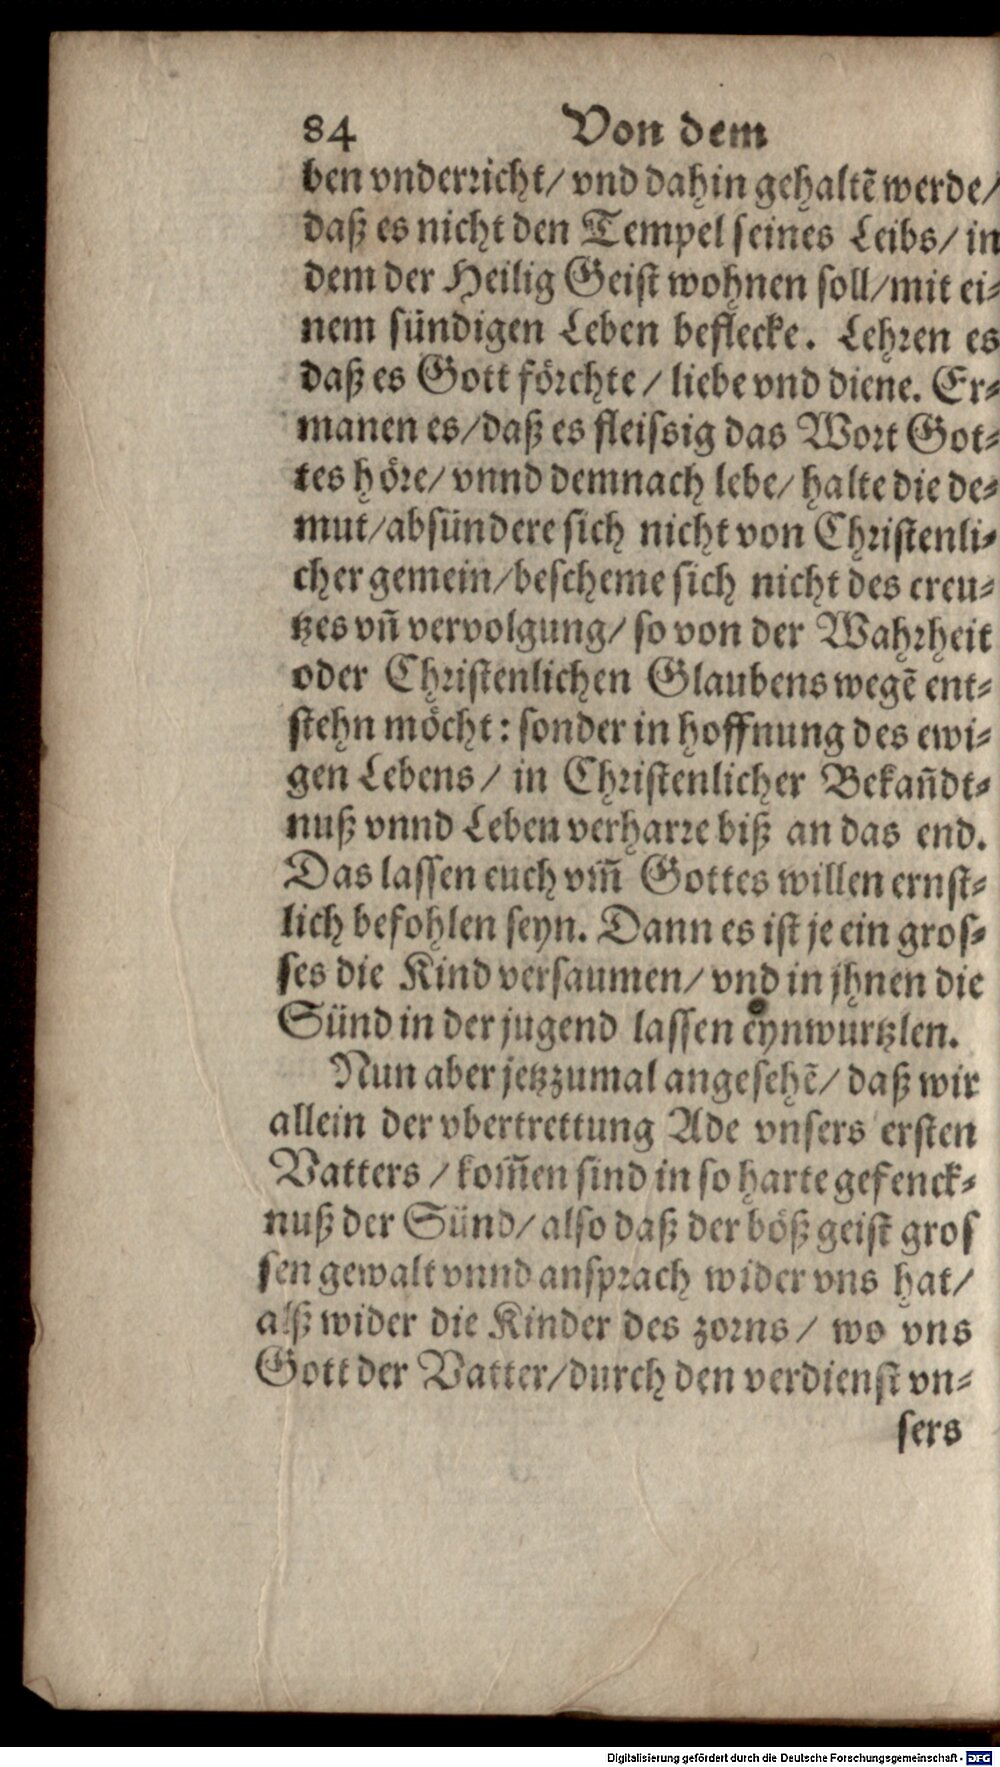 84 Von dem
ben vnderricht/ vnd dahin gehaltẽ werde/
daß es nicht den Tempel seines Leibs/ in
dem der Heilig Geist wohnen soll/mit ei⸗
nem sündigen Leben beflecke. Lehren es
daß es Gott förchte / liebe vnd diene. Er⸗
manen es/daß es fleissig das Wort Got⸗
tes höre/ vnnd demnach lebe/ halte die de⸗
mut/absündere sich nicht von Christenli⸗
cher gemein/bescheme sich nicht des creu⸗
tzes vñ vervolgung/ so von der Wahrheit
oder Christenlichen Glaubens wegẽ ent⸗
stehn möcht: sonder in hoffnung des ewi⸗
gen Lebens/ in Christenlicher Bekañdt⸗
nuß vnnd Leben verharre biß an das end.
Das lassen euch vm̃ Gottes willen ernst⸗
lich befohlen seyn. Dann es ist je ein gros⸗
ses die Kind versaumen/ vnd in jhnen die
Sünd in der jugend lassen eynwurtzlen.
Nun aber jetzzumal angesehẽ/ daß wir
allein der vbertrettung Ade vnsers ersten
Vatters / kom̃en sind in so harte gefenck⸗
nuß der Sünd/ also daß der böß geist gros
sen gewalt vnnd ansprach wider vns hat/
alß wider die Kinder des zorns/ wo vns
Gott der Vatter/durch den verdienst vn⸗
sers
Digitalisierung gefördert durch die Deutsche Forschungsgemeinschaft - DFG